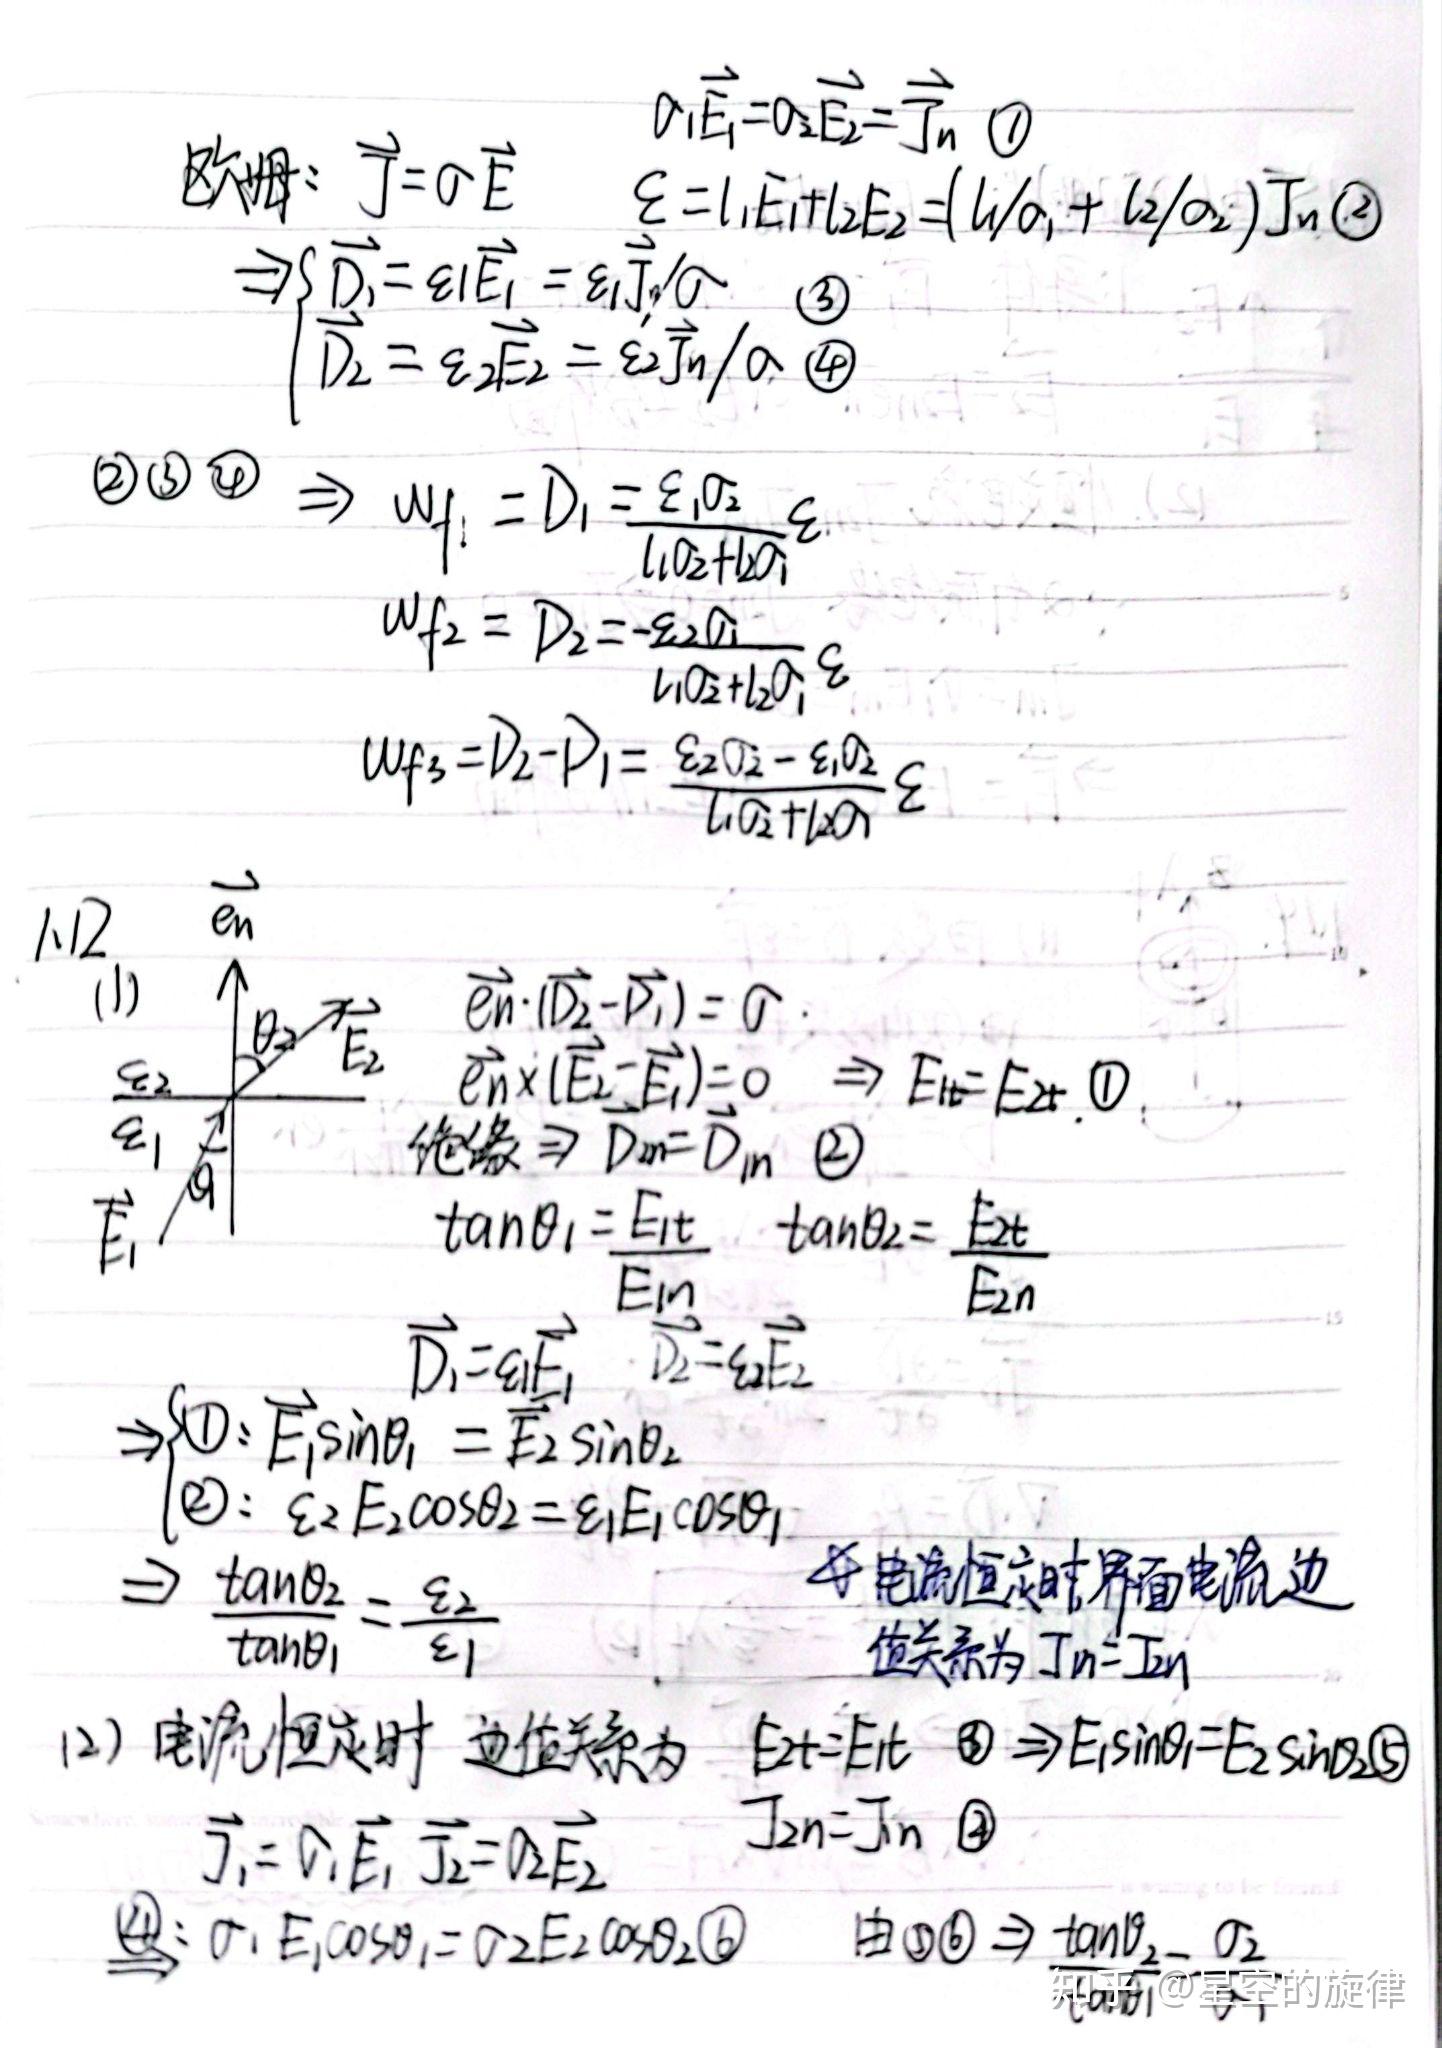 σ₁E⃗₁=σ₂E⃗₂=J⃗n ①
欧姆: J⃗=σE⃗
ε=l₁E₁+l₂E₂=(l₁/σ₁+l₂/σ₂)J⃗n ②
⇒{D⃗₁=ε₁E⃗₁=ε₁J⃗n/σ ③
D⃗₂=ε₂E⃗₂=ε₂J⃗n/σ ④
②③④ ⇒ wf₁=D₁=ε₁σ₂/(l₁σ₂+l₂σ₁) ε
wf₂=D₂=-ε₂σ₁/(l₁σ₂+l₂σ₁) ε
wf₃=D₂-D₁=(ε₂σ₂-ε₁σ₂)/(l₁σ₂+l₂σ₁) ε
1.12
(1)
e⃗n
θ₂ E⃗₂
ε₂
ε₁
θ₁
E⃗₁
e⃗n·(D⃗₂-D⃗₁)=σ.
e⃗n×(E⃗₂-E⃗₁)=0 ⇒ E₁t=E₂t. ①
绝缘⇒D⃗₂n=D⃗₁n ②
tanθ₁=E₁t/E₁n tanθ₂=E₂t/E₂n
D⃗₁=ε₁E⃗₁ D⃗₂=ε₂E⃗₂
⇒{①: E⃗₁sinθ₁=E⃗₂sinθ₂
②: ε₂E₂cosθ₂=ε₁E₁cosθ₁
⇒ tanθ₂/tanθ₁=ε₂/ε₁
电流恒定时,界面电流边
值关系为 J₁n=J₂n
(2) 电流恒定时 边值关系为 E₂t=E₁t ③⇒E₁sinθ₁=E₂sinθ₂⑤
J₂n=J₁n ④
J⃗₁=σ₁E⃗₁ J⃗₂=σ₂E⃗₂
④: σ₁E₁cosθ₁=σ₂E₂cosθ₂⑥ 由⑤⑥⇒tanθ₂/tanθ₁=σ₂/σ₁
知乎 @星空的旋律